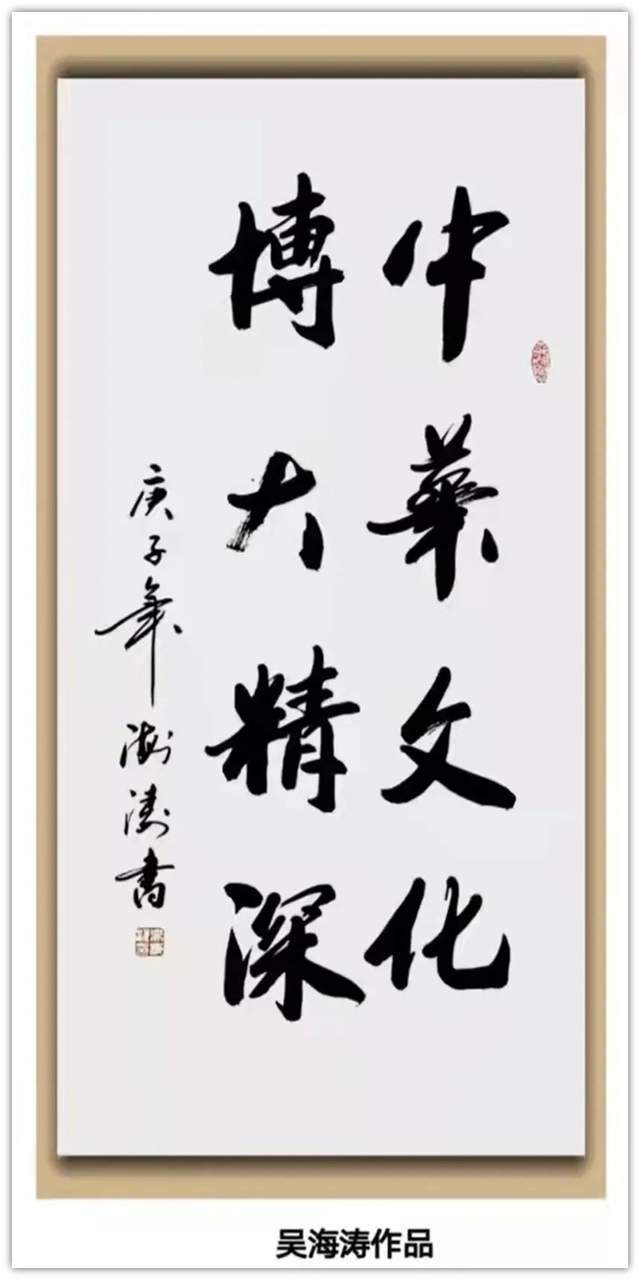 中華文化
博大精深
庚子年海涛書
吴海涛作品